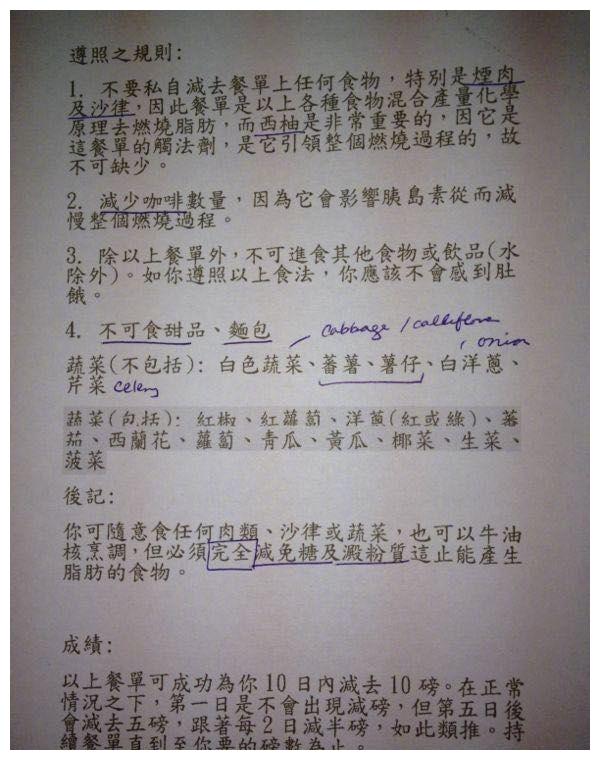 遵照之規則:
1. 不要私自減去餐單上任何食物，特別是煙肉
及沙律，因此餐單是以上各種食物混合產量化學
原理去燃燒脂肪，而西柚是非常重要的，因它是
這餐單的觸法劑，是它引領整個燃燒過程的，故
不可缺少。
2. 減少咖啡數量，因為它會影響胰島素從而減
慢整個燃燒過程。
3. 除以上餐單外，不可進食其他食物或飲品(水
除外)。如你遵照以上食法，你應該不會感到肚
餓。
4. 不可食甜品、麵包
cabbage / calliflora
, onion
蔬菜(不包括): 白色蔬菜、蕃薯、薯仔、白洋蔥、
芹菜 celery
蔬菜(包括): 紅椒、紅蘿蔔、洋蔥(紅或綠)、蕃
茄、西蘭花、蘿蔔、青瓜、黃瓜、椰菜、生菜、
菠菜
後記:
你可隨意食任何肉類、沙律或蔬菜，也可以牛油
核烹調，但必須完全減免糖及澱粉質這止能產生
脂肪的食物。
成績:
以上餐單可成功為你 10 日內減去 10 磅。在正常
情況之下，第一日是不會出現減磅，但第五日後
會減去五磅，跟著每 2 日減半磅，如此類推。持
續餐單直到至你要的磅數為止。